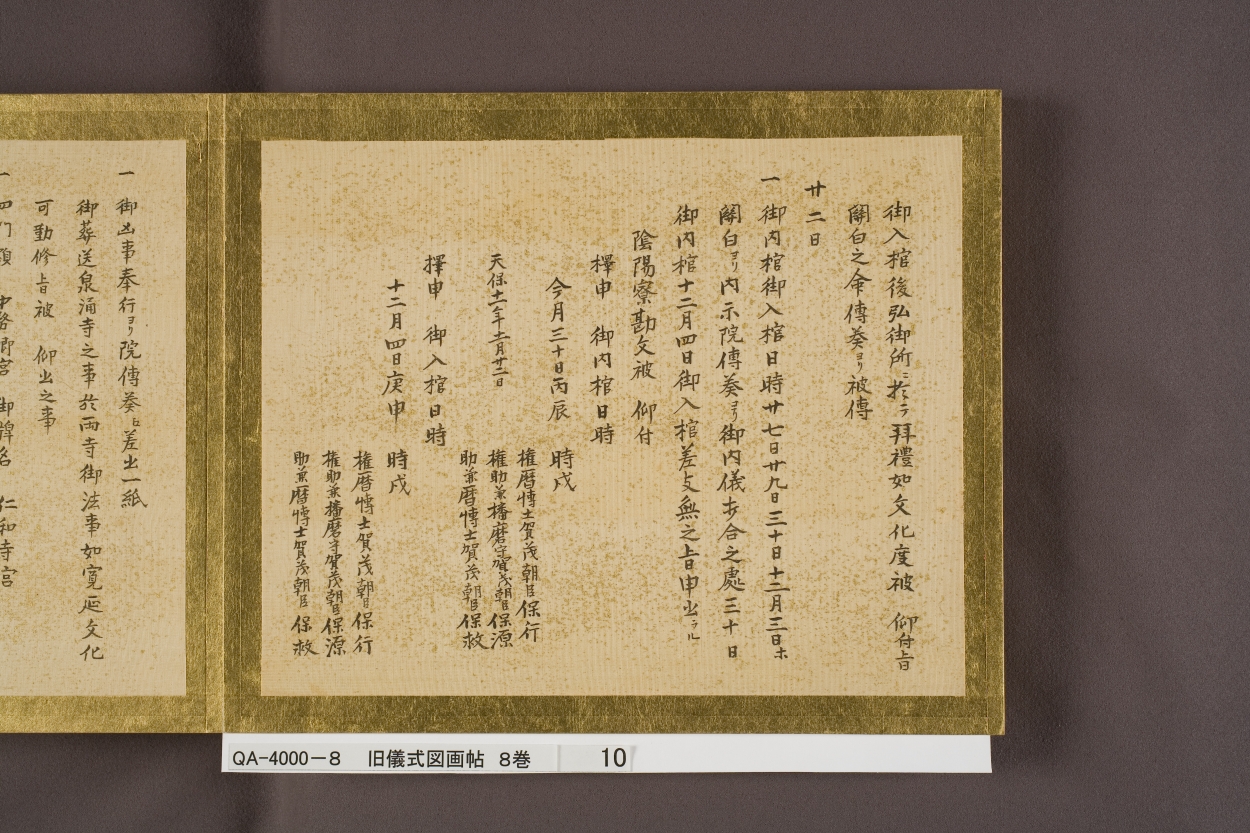 御入棺後弘御所ニ於テ拜禮如文化度被　仰付旨
關白之命傳奏ヨリ被傳
廿二日
一　御内棺御入棺日時廿七日廿九日三十日十二月三日ホ
關白ヨリ内示院傳奏ヨリ御内儀歩合之處三十日
御内棺十二月四日御入棺差支無之旨申出ラル
陰陽寮勘文被　仰付
擇申　御内棺日時
今月三十日丙辰　時戌
天保十一年十一月廿二日
權暦博士賀茂朝臣保行
權助兼播磨守賀茂朝臣保源
助兼暦博士賀茂朝臣保救
擇申　御入棺日時
十二月四日庚申　時戌
權暦博士賀茂朝臣保行
權助兼播磨守賀茂朝臣保源
助兼暦博士賀茂朝臣保救
一　御凶事奉行ヨリ院傳奏ヒ差出一紙
御葬送泉涌寺之事於両寺御法事如寛延文化
可勤修旨被　仰出之事
一　四門額　御牌名　仁和寺宮
QA-4000-8　旧儀式図画帖　8巻　10